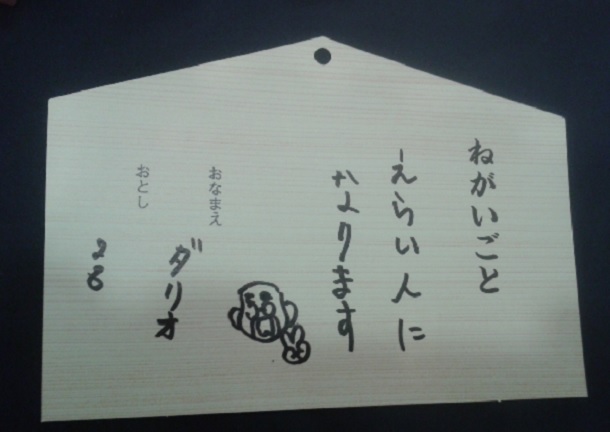 ねがいごと
えらい人に
なります
おなまえ
ダリオ
おとし
28